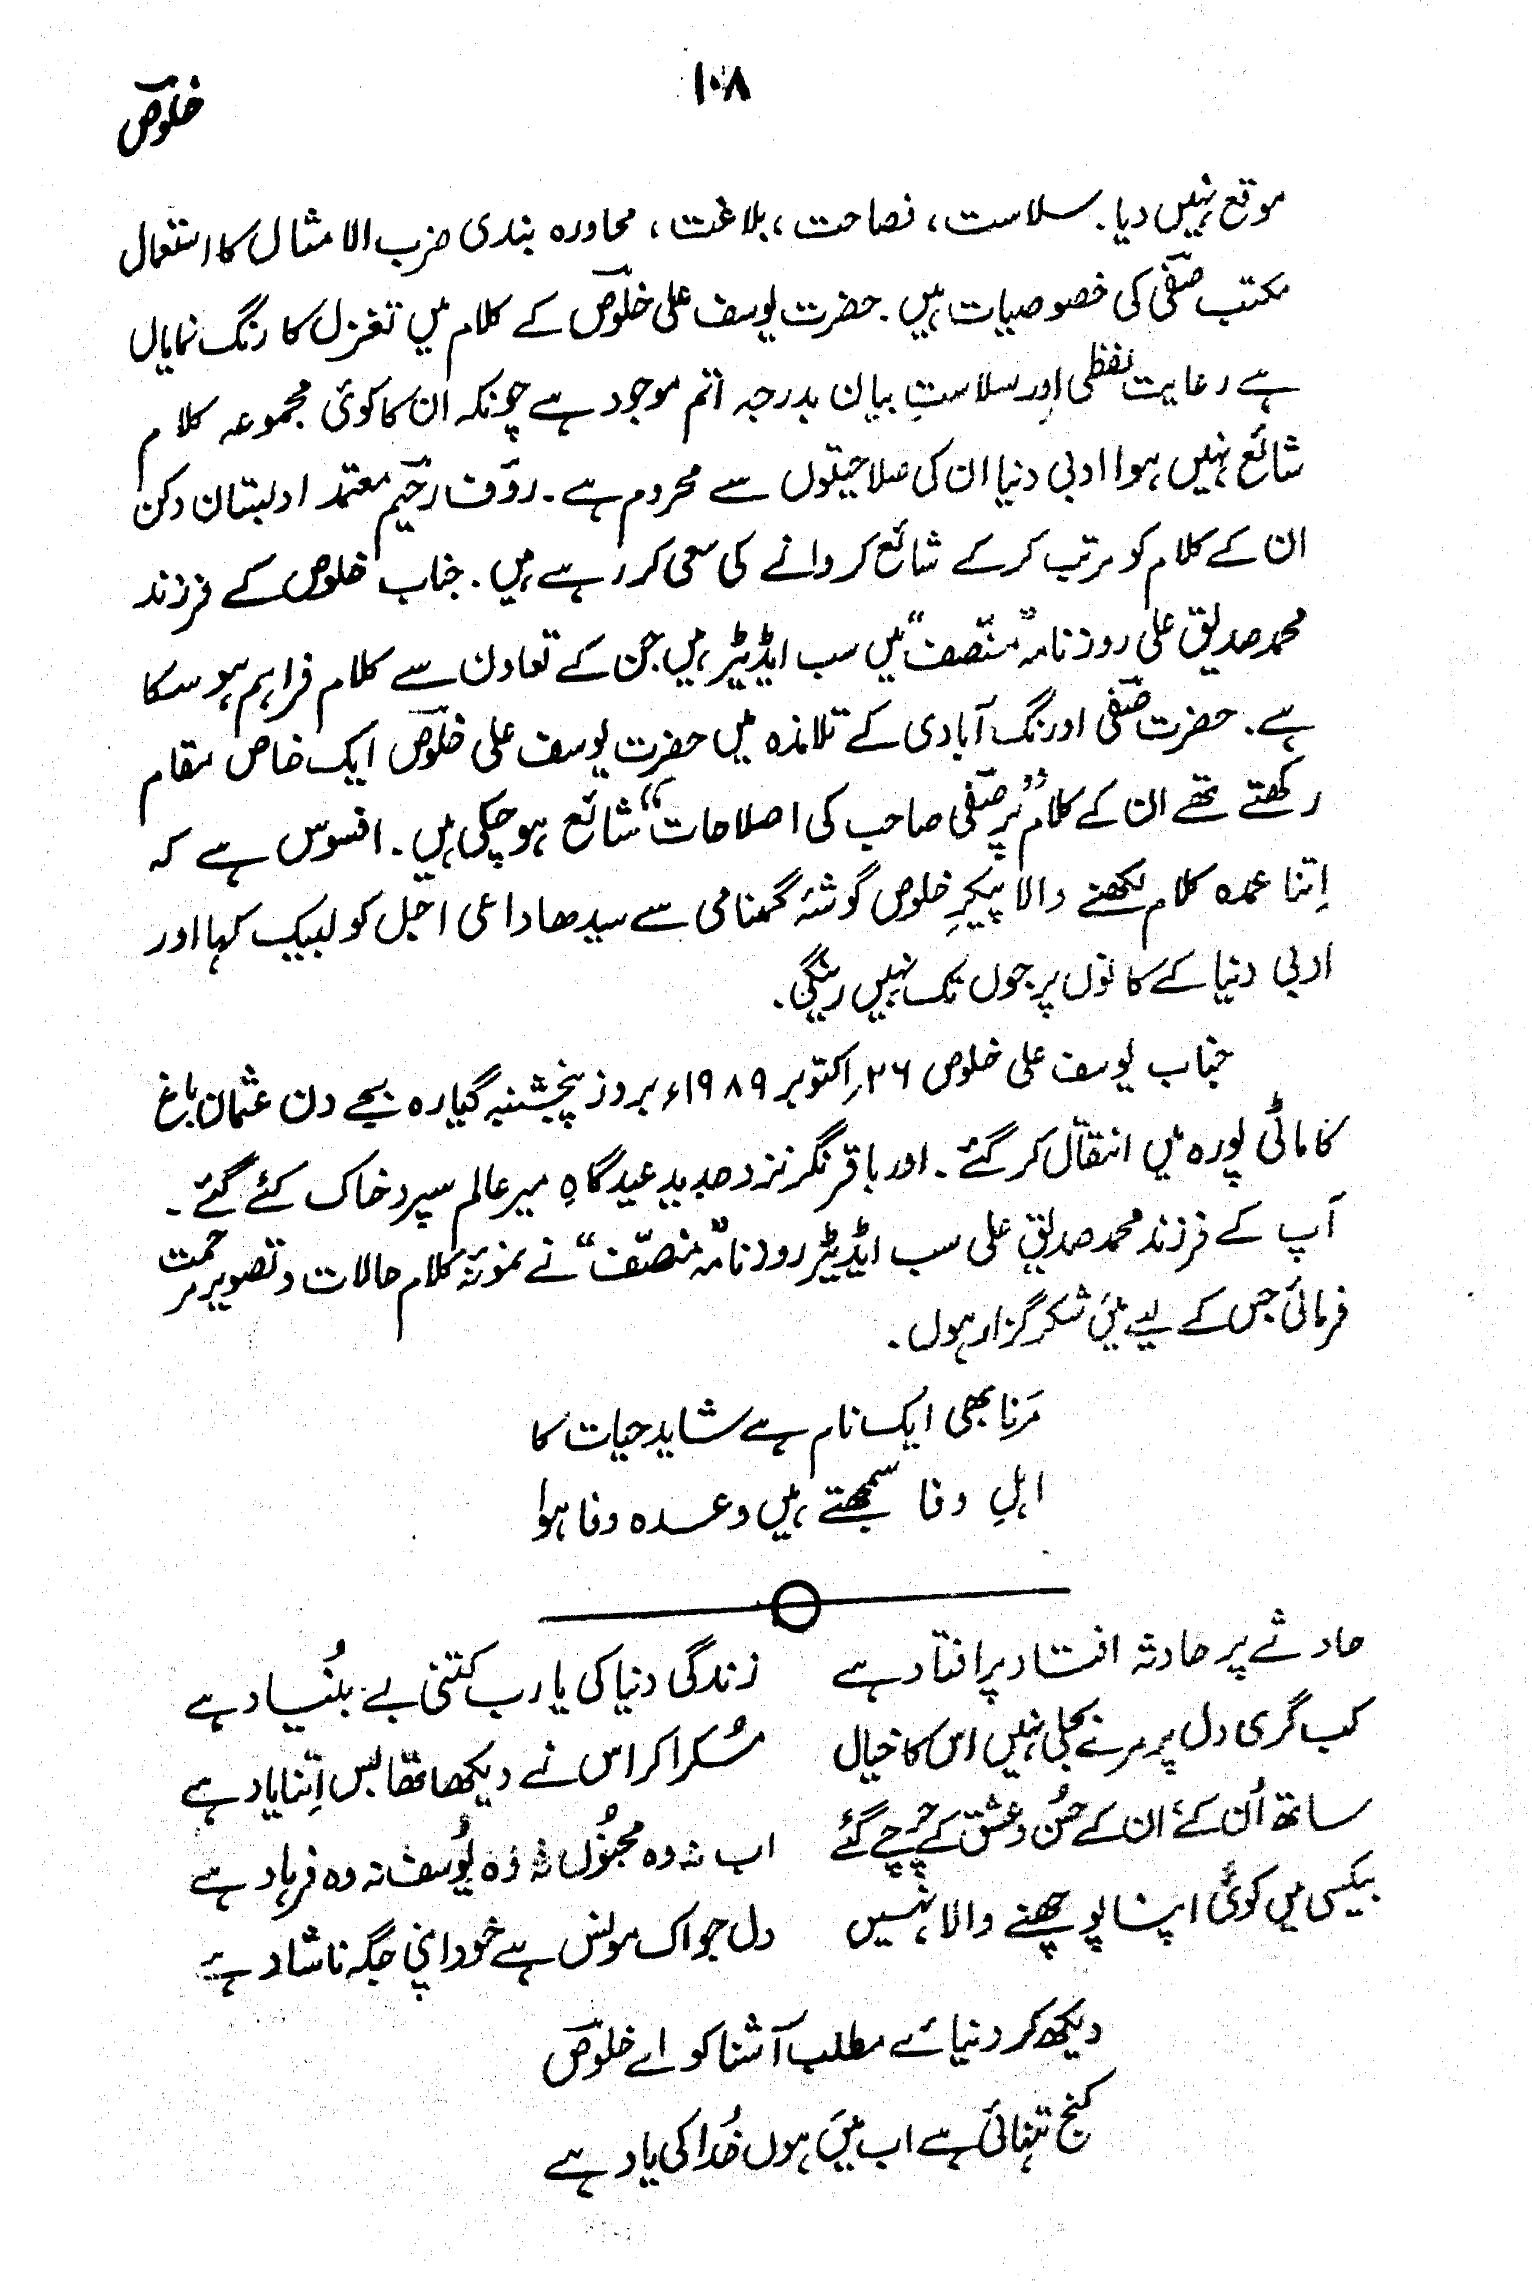 ۱۰۸
خلوصؔ
موقع نہیں دیا. سلاست، فصاحت، بلاغت، محاورہ بندی ضرب الامثال کا استعمال
مکتب صفیؔ کی خصوصیات ہیں. حضرت یوسف علی خلوصؔ کے کلام میں تغزل کا رنگ نمایاں
ہے رعایت لفظی اور سلاستِ بیان بدرجہ اتم موجود ہے چونکہ ان کا کوئی مجموعہ کلام
شائع نہیں ہوا ادبی دنیا ان کی صلاحیتوں سے محروم ہے۔ روؔف رحیمؔ معتمد ادبستان دکن
ان کے کلام کو مرتب کرکے شائع کروانے کی سعی کر رہے ہیں. جناب خلوصؔ کے فرزند
محمد صدیق علی روزنامہ "منصف" میں سب ایڈیٹر ہیں جن کے تعاون سے کلام فراہم ہو سکا
ہے. حضرت صفیؔ اورنگ آبادی کے تلامذہ میں حضرت یوسف علی خلوصؔ ایک خاص مقام
رکھتے تھے ان کے کلام "پر صفیؔ صاحب کی اصلاحات" شائع ہو چکی ہیں. افسوس ہے کہ
اِتنا عمدہ کلام لکھنے والا پیکرِ خلوص گوشۂ گمنامی سے سیدھا داعی اجل کو لبیک کہا اور
ادبی دنیا کے کانوں پر جوں تک نہیں رینگی.
جناب یوسف علی خلوص ۲۶؍ اکتوبر ۱۹۸۹ء بروز پنچشنبہ گیارہ بجے دن عثمان باغ
کاماٹی پورہ میں انتقال کر گئے۔ اور باقر نگر نزد جدید عیدگاہِ میر عالم سپرد خاک کئے گئے۔
آپ کے فرزند محمد صدیق علی سب ایڈیٹر روزنامہ "منصف" نے نمونۂ کلام حالات و تصویر مرحمت
فرمائی جس کے لیے میں شکر گزار ہوں.
مَرنا بھی ایک نام ہے شاید حیات کا
اہلِ وفا سمجھتے ہیں وعدہ وفا ہوا
حادثے پر حادثہ افتاد پر افتاد ہے زندگی دنیا کی یارب کتنی بے بُنیاد ہے
کب گری دل پر مرے بجلی نہیں اس کا خیال مُسکرا کر اس نے دیکھا تھا بس اِتنا یاد ہے
ساتھ اُن کے ان کے حُسن و عشق کے چرچے گئے اب نہ وہ مجنُوں نہ وہ یُوسف نہ وہ فرہاد ہے
بیکسی میں کوئی اپنا پوچھنے والا نہیں دل جو اک مونس ہے خود اپنی جگہ ناشاد ہے
دیکھ کر دنیائے مطلب آشنا کو اے خلوصؔ
کنج تنہائی ہے اب میں ہوں خُدا کی یاد ہے